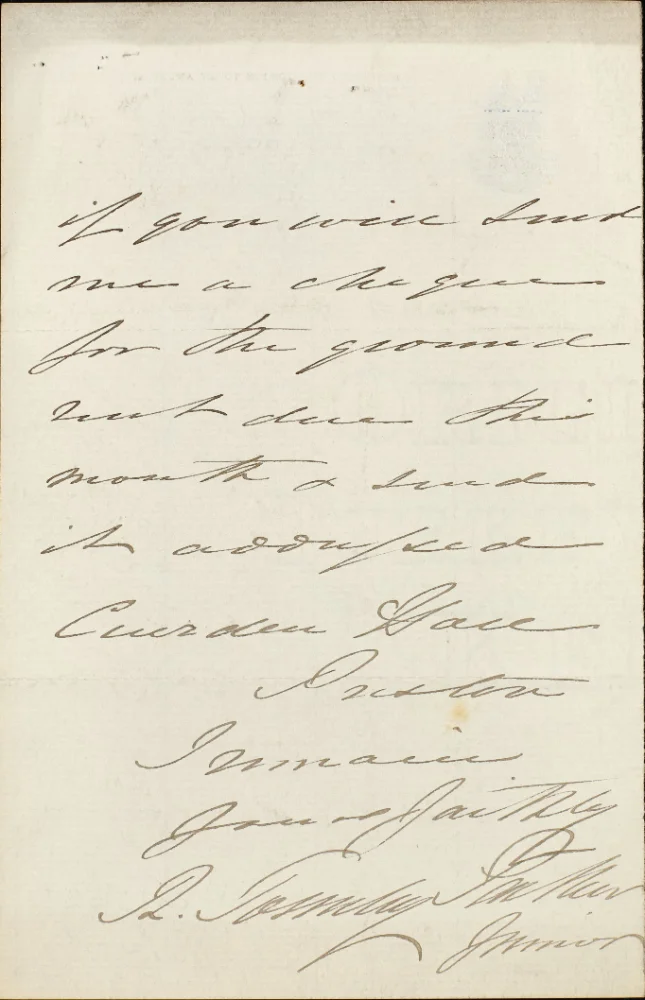 if you will send
me a cheque
for the ground
rent due this
month & send
it addressed
Cuerden Hall
Preston
I remain
Yours faithly
R. Townley Parker
Junior